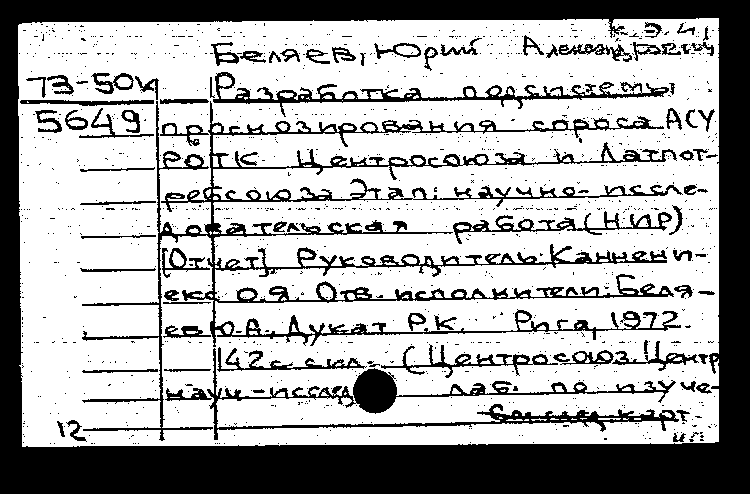 К.Э.4,
Беляев, Юрий Александрович
73-50к Разработка подсистемы
5649 прогнозирования спроса АСУ
РОТК Центросоюза и Латпот-
ребсоюза Этап: научно-иссле-
довательская работа (НИР)
[Отчет]. Руководитель: Каннени-
екс О.Я. Отв. исполнители: Беля-
ев Ю.А., Дукат Р.К. Рига, 1972.
142 с. с ил. (Центросоюз. Центр
науч-исслед лаб. по изуче-
См след. карт.
12